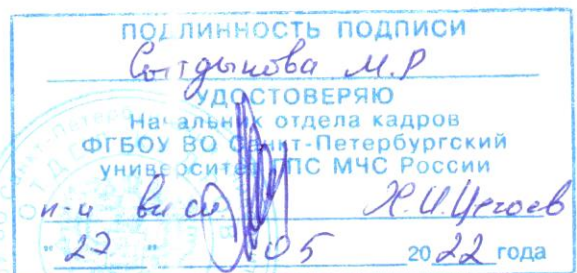 ПОДЛИННОСТЬ ПОДПИСИ
М.Р
УДОСТОВЕРЯЮ
Начальник отдела кадров
ФГБОУ ВО Санкт-Петербургский
университет ГПС МЧС России
"27" 05 2022 года